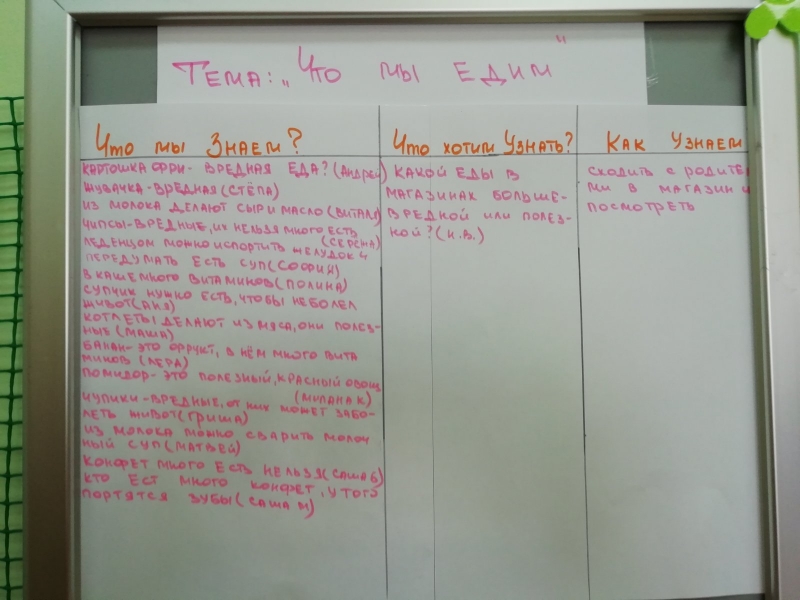 Тема: „Что мы едим"
Что мы знаем?
Картошка фри- вредная еда? (Андрей)
Жувачка- вредная (Стёпа)
Из молока делают сыр и масло (Витал)
Чипсы- вредные, их нельзя много есть
(Серёжа)
Леденцом можно испортить желудок и
передумать есть суп (София)
В каше много витаминов (Полина)
Супчик нужно есть, чтобы неболел
живот (Аня)
Котлеты делают из мяса, они полез-
ные (Маша)
Банан- это фрукт, в нём много вита
минов (Лера)
Помидор- это полезный, красный овощ
(Милана К)
Чупики- вредные, от них может забо-
леть живот (Гриша)
Из молока можно сварить молоч
ный суп (Матвей)
Конфет много есть нельзя (Саша Б)
Кто ест много конфет, у того
портятся зубы (Саша М)
Что хотим узнать?
Какой еды в
магазинах больше-
вредной или полез-
ной? (Н.В.)
Как узнаем
Сходить с родите
ми в магазин и
посмотреть